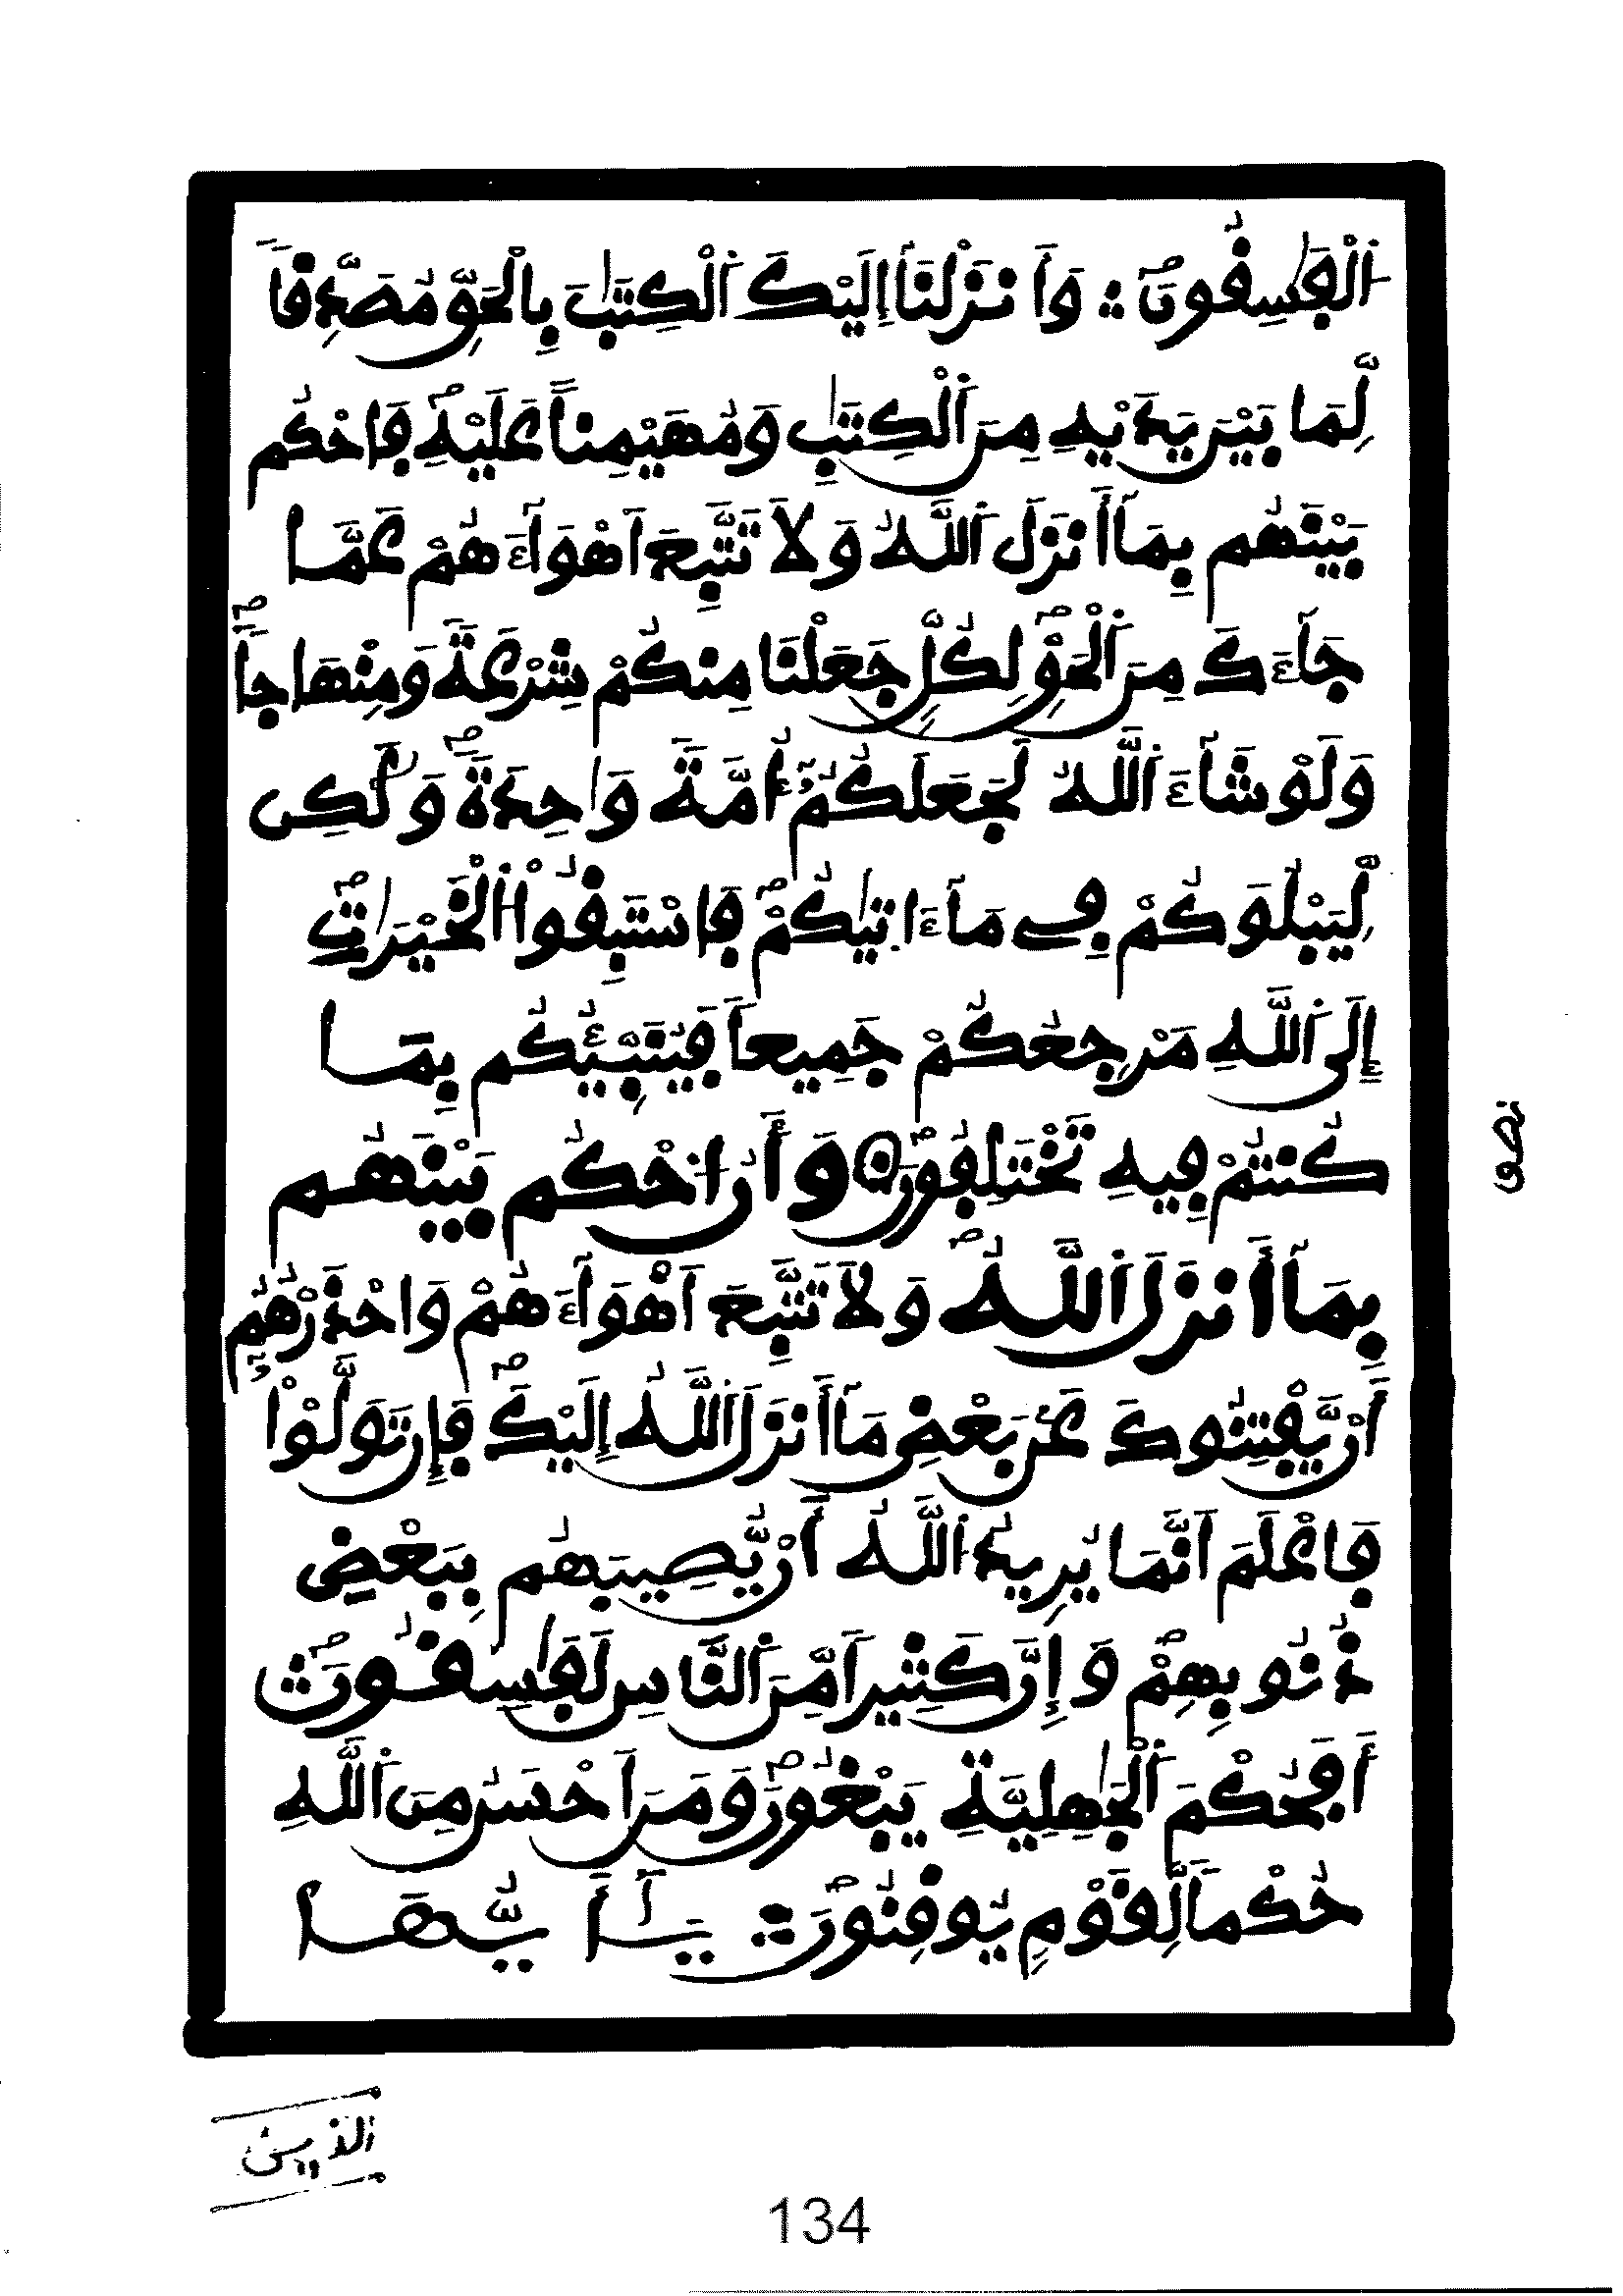 اَ۬لْفَٰسِقُونَۖ ∴ وَأَنزَلْنَآ إِلَيْكَ اَ۬لْكِتَٰبَ بِالْحَقِّ مُصَدِّقاً
لِّمَا بَيْنَ يَدَيْهِ مِنَ اَ۬لْكِتَٰبِ وَمُهَيْمِناً عَلَيْهِۖ فَاحْكُم
بَيْنَهُم بِمَآ أَنزَلَ اَ۬للَّهُ وَلَا تَتَّبِعَ اَهْوَآءَهُمْ عَمَّا
جَآءَكَ مِنَ اَ۬لْحَقِّۖ لِكُلٍّ جَعَلْنَا مِنكُمْ شِرْعَةً وَمِنْهَاجاًۖ
وَلَوْ شَآءَ اَ۬للَّهُ لَجَعَلَكُمُۥٓ أُمَّةً وَٰحِدَةًۖ وَلَٰكِن
لِّيَبْلُوَكُمْ فِے مَآ ءَاتَيٰكُمْۖ فَاسْتَبِقُواْ اُ۬لْخَيْرَٰتِۖ
إِلَى اَ۬للَّهِ مَرْجِعُكُمْ جَمِيعاً فَيُنَبِّئُكُم بِمَا
كُنتُمْ فِيهِ تَخْتَلِفُونَۖ ۝ وَأَنُ اُ۟حْكُم بَيْنَهُم
بِمَآ أَنزَلَ اَ۬للَّهُۖ وَلَا تَتَّبِعَ اَهْوَآءَهُمْ وَاحْذَرْهُمُۥٓ
أَنْ يَّفْتِنُوكَ عَنۢ بَعْضِ مَآ أَنزَلَ اَ۬للَّهُ إِلَيْكَۖ فَإِن تَوَلَّوْاْ
فَاعْلَمَ اَنَّمَا يُرِيدُ اُ۬للَّهُ أَنْ يُّصِيبَهُم بِبَعْضِ
ذُنُوبِهِمْۖ وَإِنَّ كَثِيراً مِّنَ اَ۬لنَّاسِ لَفَٰسِقُونَۖ ∴
أَفَحُكْمَ اَ۬لْجَٰهِلِيَّةِ يَبْغُونَۖ وَمَنَ اَحْسَنُ مِنَ اَ۬للَّهِ
حُكْماً لِّقَوْمٍ يُوقِنُونَۖ ∴ يَٰٓأَيُّهَا
نصف
الذين
134